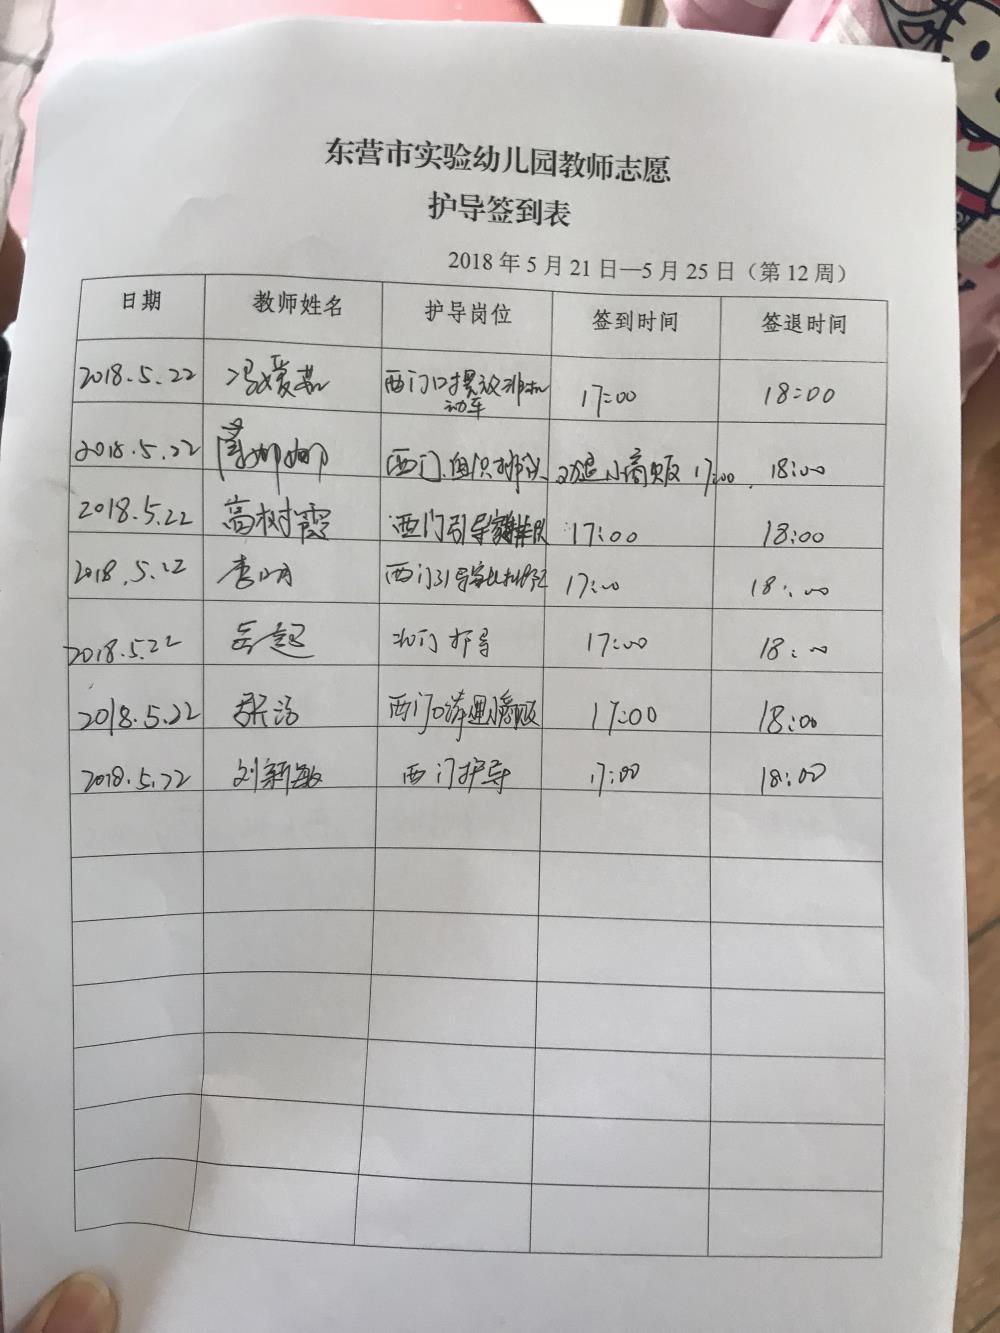 东营市实验幼儿园教师志愿
护导签到表
2018 年 5 月 21 日—5 月 25 日（第 12 周）
日期 教师姓名 护导岗位 签到时间 签退时间
2018.5.22 冯媛 西门口摆放非机动车 17:00 18:00
2018.5.22 娜娜 西门.组织排队 劝退小商贩 17:00. 18:00
2018.5.22 高树霞 西门引导家长排队 17:00 18:00
2018.5.22 李 西门引导家长排队 17:00 18:00
2018.5.22 岳起 北门护导 17:00 18:00
2018.5.22 西门口清理小商贩 17:00 18:00
2018.5.22 刘新敏 西门护导 17:00 18:00